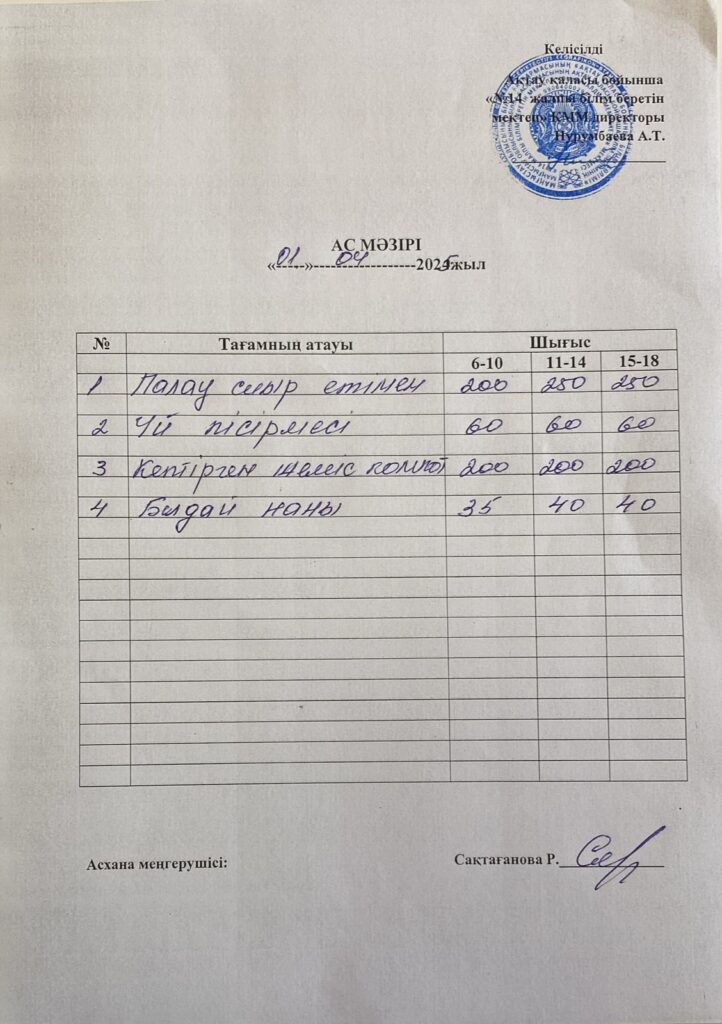 Келісілді
Ақтау қаласы бойынша
«№14 жалпы білім беретін
мектеп» КММ директоры
Нурумбаева А.Т.
АС МӘЗІРІ
«01» 04 2025 жыл
№ Тағамның атауы Шығыс
6-10 11-14 15-18
1 Палау сиыр етімен 200 250 250
2 Үй пісірмесі 60 60 60
3 Кептірген жеміс компот 200 200 200
4 Бидай наны 35 40 40
Асхана меңгерушісі: Сақтағанова Р.